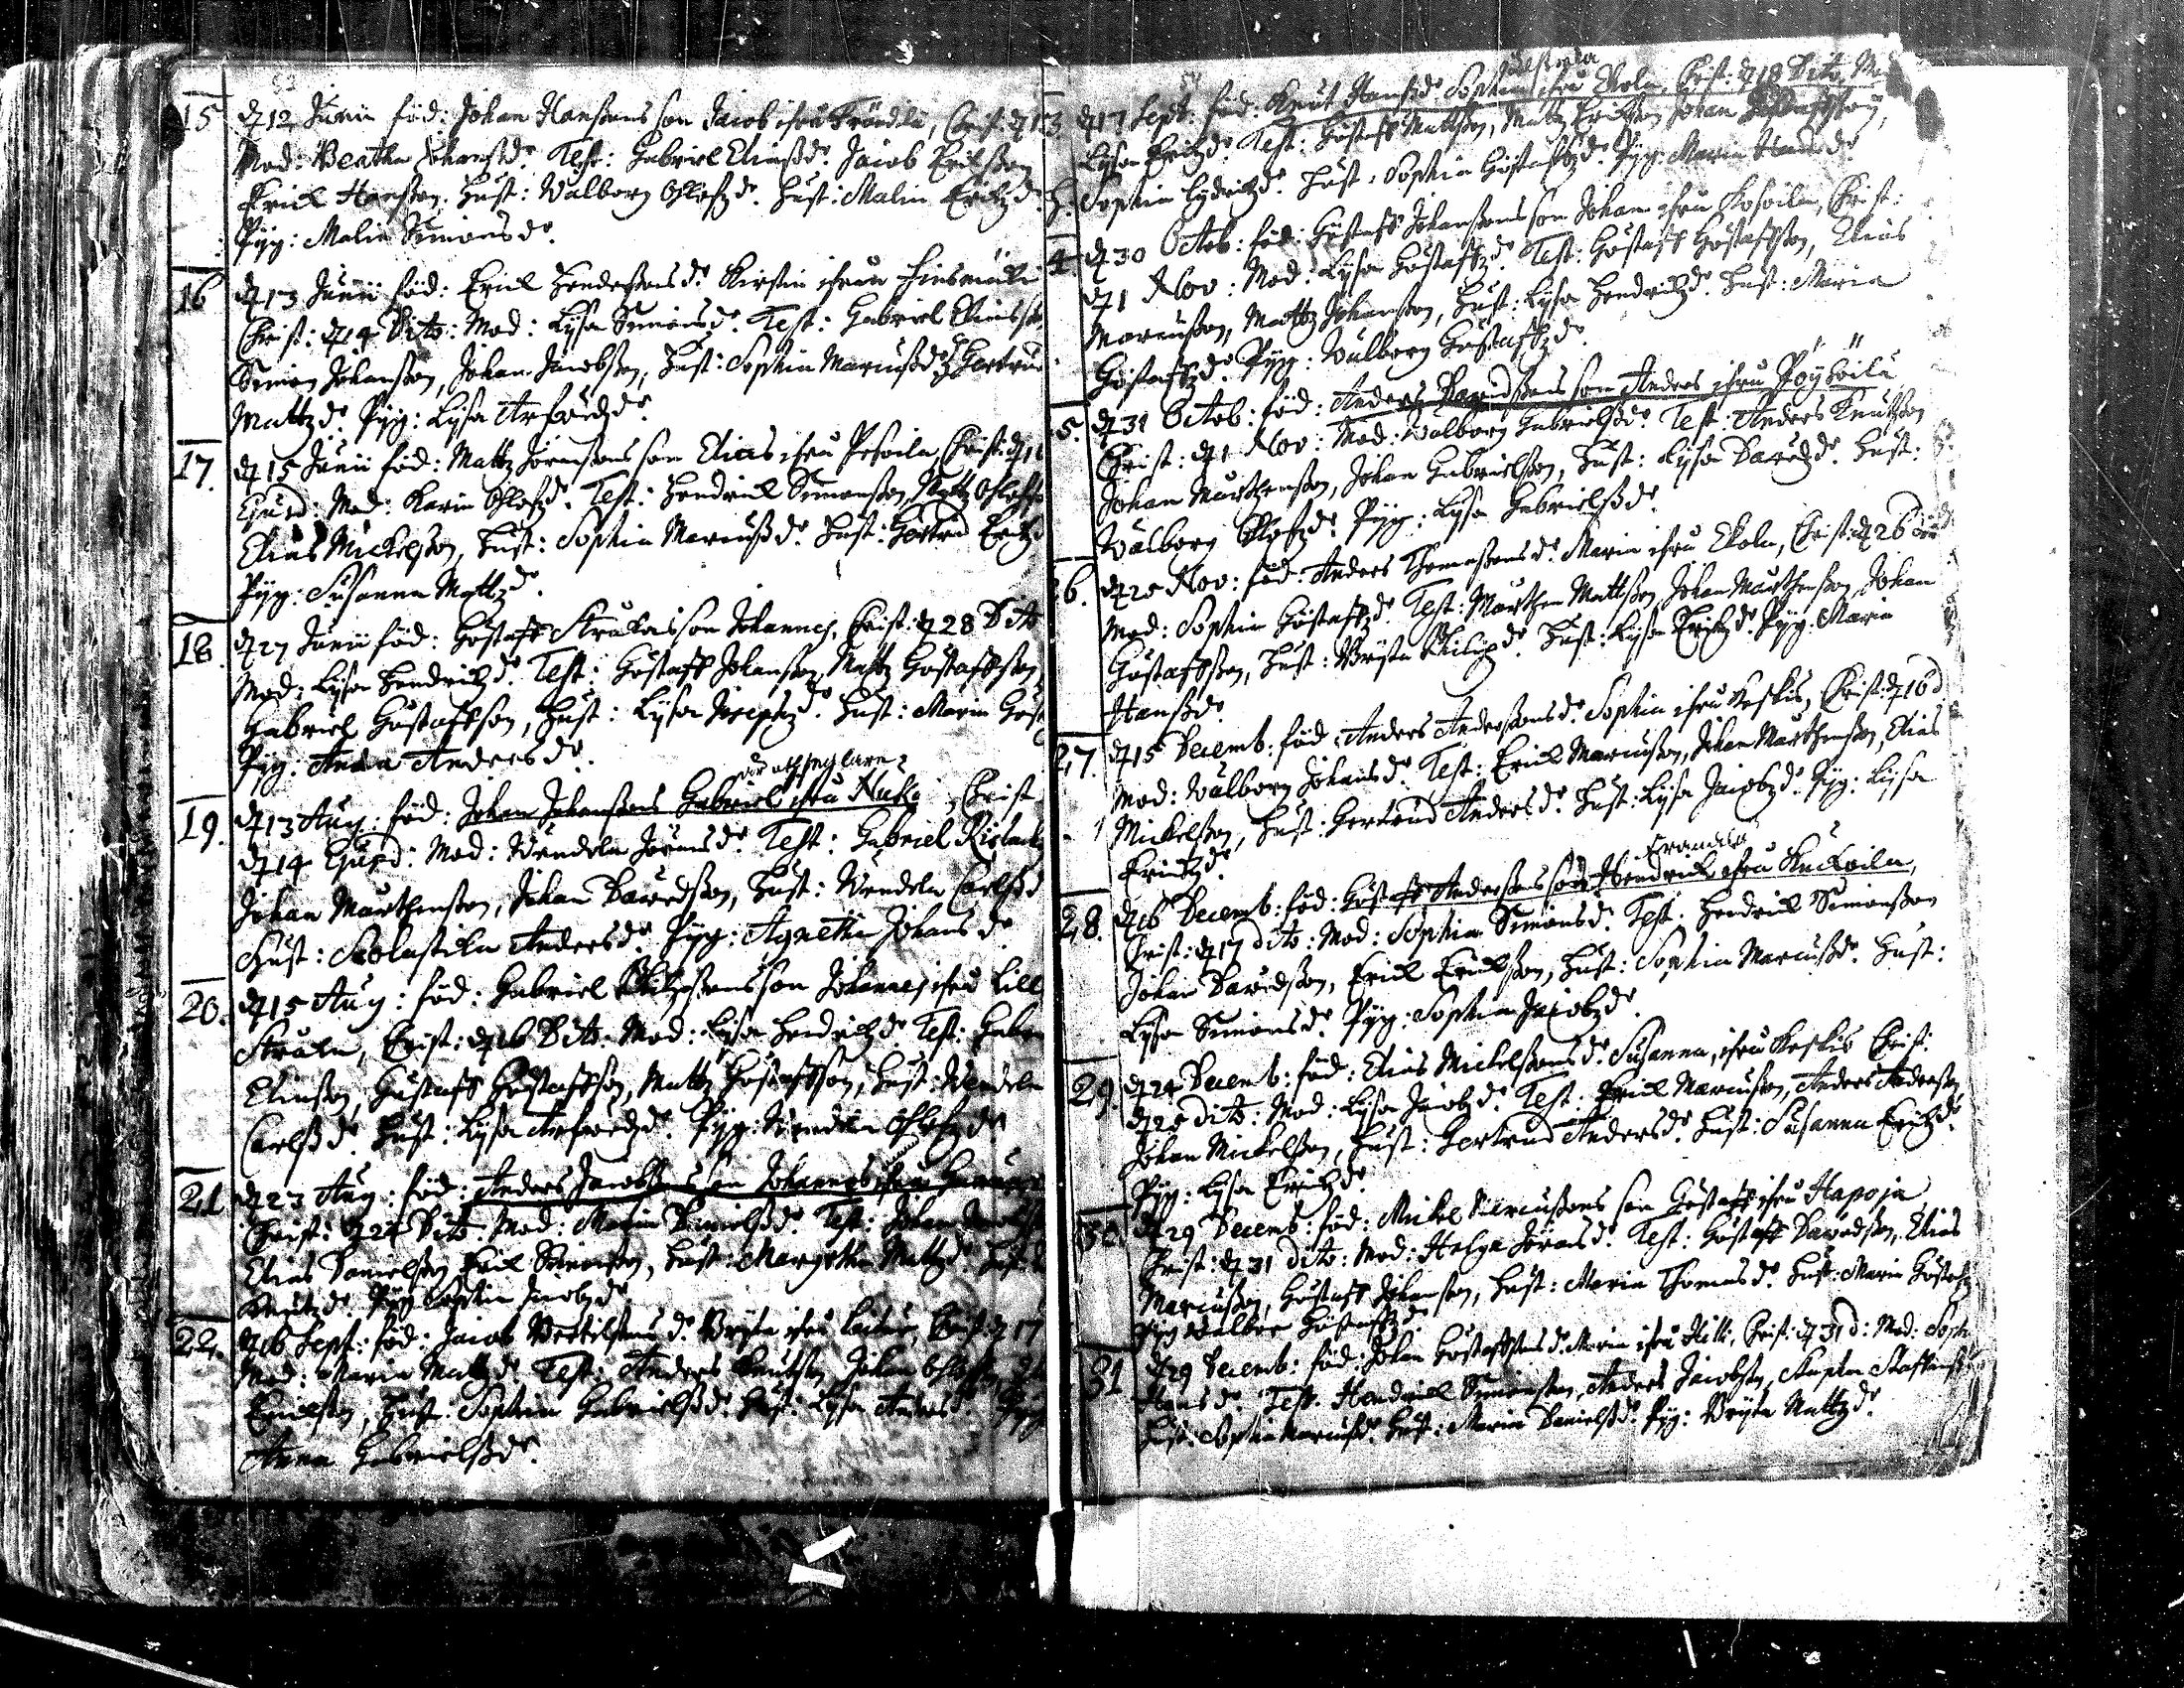 53
15 d 12 Junii föd: Johan Hanssons son Jacob ifrån Frändilä, Christ: d 13
Mod: Beatha Johansdr. Test: Gabriel Eliassdr. Jacob Erikson
Erich Hansson. Hust: Walborg Olofzdr. Hust: Malin Erichzdr
Pyg: Malin Simonsdr.
16 d 13 Junii föd: Erich Hendersons dr. Kirstin ifrån
Christ: d 14 Dito: Mod: Lysa Simonsdr. Test: Gabriel Eliasson
Simon Johansson, Johan Jacobsson, Hust: Sophia Marcussdr. H Gertrud
Mattzdr. Pyg: Lysa Arfwedzdr.
17. d 15 Junii föd: Mattz Jöransons son Elias ifrån Pesoila, Christ: d 16
Ejusd: Mod: Karin Olofzdr. Test: Hendrich Simonsson, Mattz Olofsson
Elias Mickelsson, Hust: Sophia Marcussdr. Hust: Gertrud Erichz
Pyg: Susanna Mattzdr.
18. d 27 Junii föd: Göstaff Strukas son Johannes, Christ: d 28 Dito
Mod: Lysa Hendrichzdr. Test: Göstaff Johansson, Mattz Göstaffsson
Gabriel Göstaffson, Hust: Lysa Josephzdr. Hust: Maria Göst
Pyg: Anna Andersdr.
19. d 13 Aug: föd: Johan Johansons Gabriel ifrån Kuko, Christ
d 14 Ejusd: Mod: Wendela Jöransdr. Test: Gabriel
Johan Mårthensson, Johan Davidsson, Hust: Wendela Carlssd
Hust: Scolastika Andersdr. Pyg: Agnetha Johansdr.
20. d 15 Aug: föd: Gabriel Philipssons son Johannes ifrån Lill
Stråla, Christ: d 16 Dito: Mod: Lysa Hendrichzdr. Test: Gabri
Eliasson, Gustaff Göstaffson, Mattz Göstaffsson, Hust: Wendela
Carlssdr. Hust: Lysa Arfwedzdr. Pyg: Wendela Olofzdr
21 d 23 Aug: föd: Anders Jacobssons son Johannes ifrån
Christ: d 24 Dito. Mod: Maria Danielssdr. Test: Johan
Elias Danielsson Erich Simonsson, Hust: Margetha Mattzdr. Hust:
Knutzdr. Pyg Sophia Jacobzdr
22. d 16 Sept: föd: Jacob Bertilssons dr. Bryta ifrån Christ: d 17
Mod: Maria Mattzdr. Test: Anders Knutsson Johan
Erichsson, Hust: Sophia Gabrielssdr. Hust: Lysa Andersdr Pyg
Anna Gabrielssdr.
3 d 17 Sept: föd: Knut Hanssdr Sophia ifrån Ekola, Christ: d 18 Dito. Mo
Lysa Erichzdr. Test: Göstaff Mattsson, Mattz Erichsson Johan Göstaffsson,
H: Sophia Hust: Sophia Göstaffzdr. Pyg: Maria
4 d 30 Octob: föd: Göstaff Johanssons son Johan ifrån Kosoila, Christ:
d 1 Nov: Mod: Lysa Göstaffzdr. Test: Göstaff Göstaffsson, Elias
Marcusson, Mattz Johansson, Hust: Lysa Hendrichzdr. Hust: Maria
Göstaffzdr. Pyg: Walborg Göstaffzdr.
5. d 31 Octob: föd: Anders Davidssons son Anders ifrån Pöyköilä
Christ: d 1 Nov: Mod: Walborg Gabrielssdr. Test: Anders Knutsson
Johan Mårthensson, Johan Gabrielsson, Hust: Lysa Davidzdr. Hust:
Walborg Olofzdr. Pyg: Lysa Gabrielssdr.
6. d 25 Nov: föd: Anders Thomassons dr. Maria ifrån Ekola, Christ: d 26
Mod: Sophia Göstaffzdr. Test: Mårthen Mattsson, Johan Mårthensson, Johan
Göstaffsson, Hust: Bryta Philipzdr. Hust: Lysa Erichzdr. Pyg: Maria
Hanssdr.
27. d 15 Decemb: föd: Anders Andersons dr. Sophia ifrån Keskis, Christ: d 16 d
Mod: Walborg Johansdr. Test: Erich Marcusson, Johan Mårthensson, Elias
Mickelsson, Hust: Gertrud Andersdr. Hust: Lysa Jacobzdr. Pyg: Lysa
Erichzdr.
28. d 16 Decemb: föd: Göstaff Anderssons son Hendrich ifrån Kuckoila,
Christ: d 17 dito: Mod: Sophia Simonsdr. Test. Hendrich Simonsson
Johan Davidsson, Erich Erichsson, Hust: Sophia Marcussdr. Hust:
Lysa Simonsdr. Pyg: Sophia Jacobzdr.
29. d 24 Decemb: föd: Elias Mickelssons dr. Susanna, ifrån Keskis Christ:
d 25 dito: Mod: Lysa Jacobzdr. Test: Erich Marcusson, Anders Andersson
Johan Mickelsson, Hust: Gertrud Andersdr. Hust: Susanna Erichzdr.
Pyg: Lysa Erichzdr.
30. d 29 Decemb: föd: Mickel Marcussons son Göstaff ifrån Hapoja
Christ: d 31 dito: Mod: Helga Jöransdr. Test: Göstaff Davidsson, Elias
Marcusson, Göstaff Johansson, Hust: Maria Thomasdr. Hust: Maria Göstafz
Pyg Walbor Göstaffzdr
31 d 29 Decemb: föd: Johan Göstaffssons dr. Maria ifrån Killi, Christ: d 31 d: Mod: Soph
Hansdr. Test. Hendrich Simonsson, Anders Jacobsson, Staffan Staffansson
Hust: Sophia Marcussdr. Hust: Maria Danielssdr. Pyg: Bryta Mattzdr.